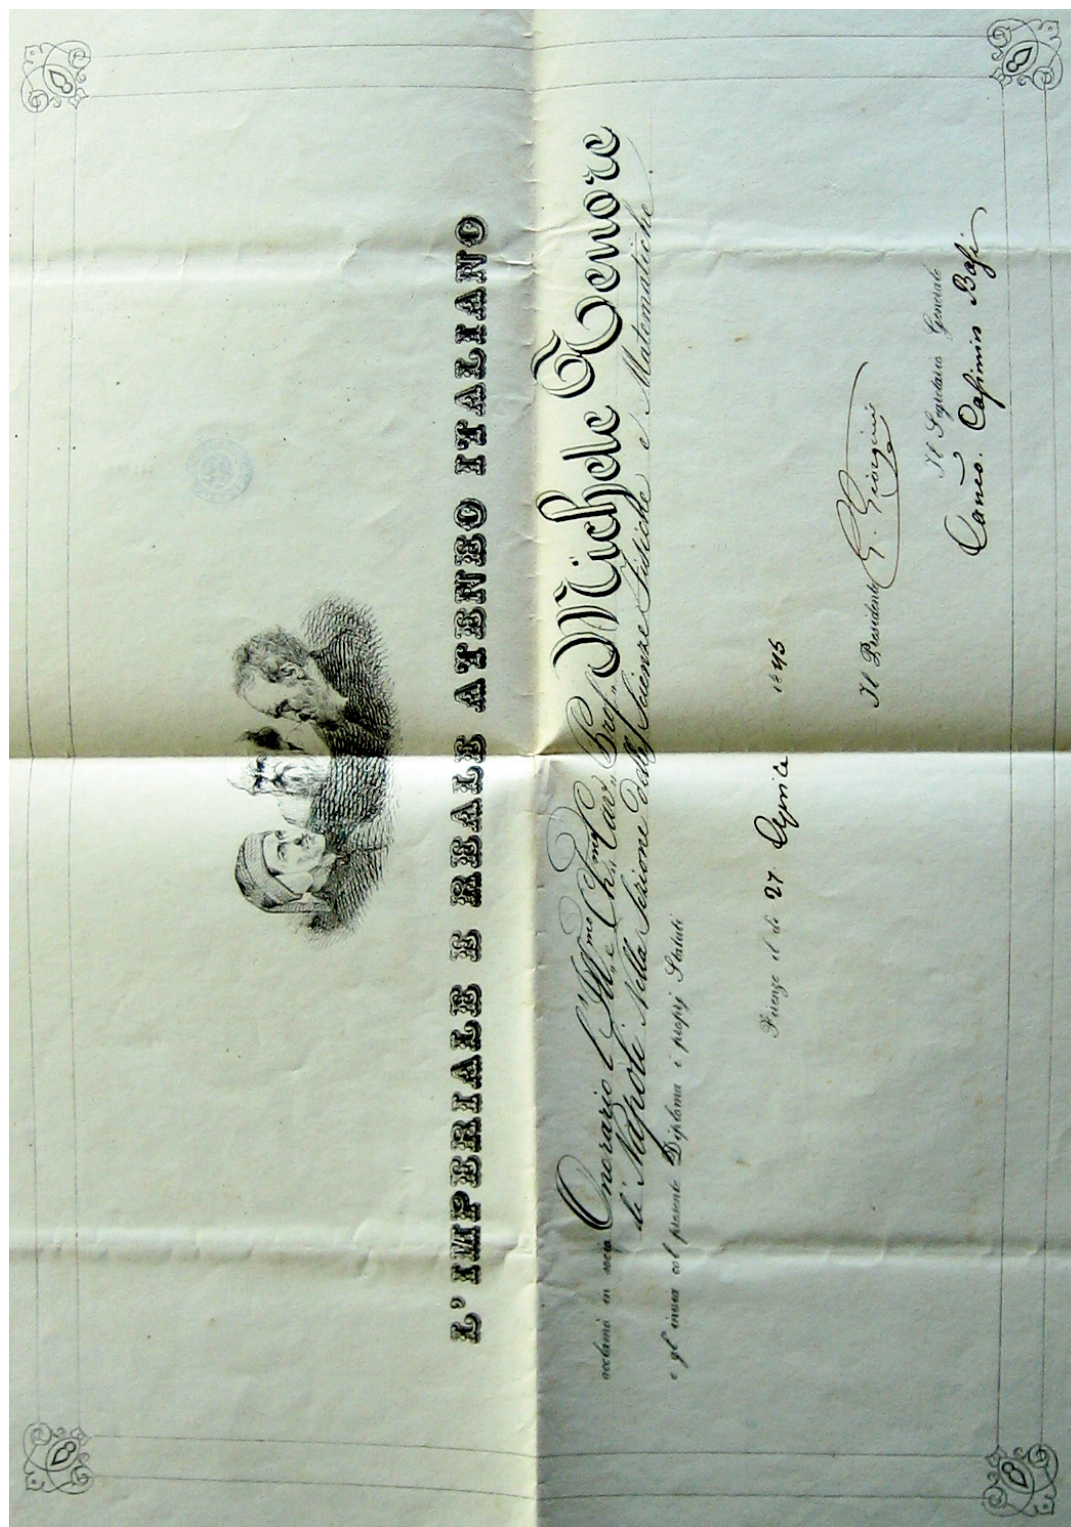 L'IMPERIALE E REALE ATENEO ITALIANO
acclamò in socio Onorario l'Ill.mo e Ch.mo Cav.r Prof. Michele Tenore
di Napoli Nella Sezione delle Scienze Fisiche e Matematiche
e gl' invia col presente Diploma i proprj Statuti
Firenze il dì 27 Aprile 1845
Il Presidente G. Giorgini
Il Segretario Generale
Casimiro Basi